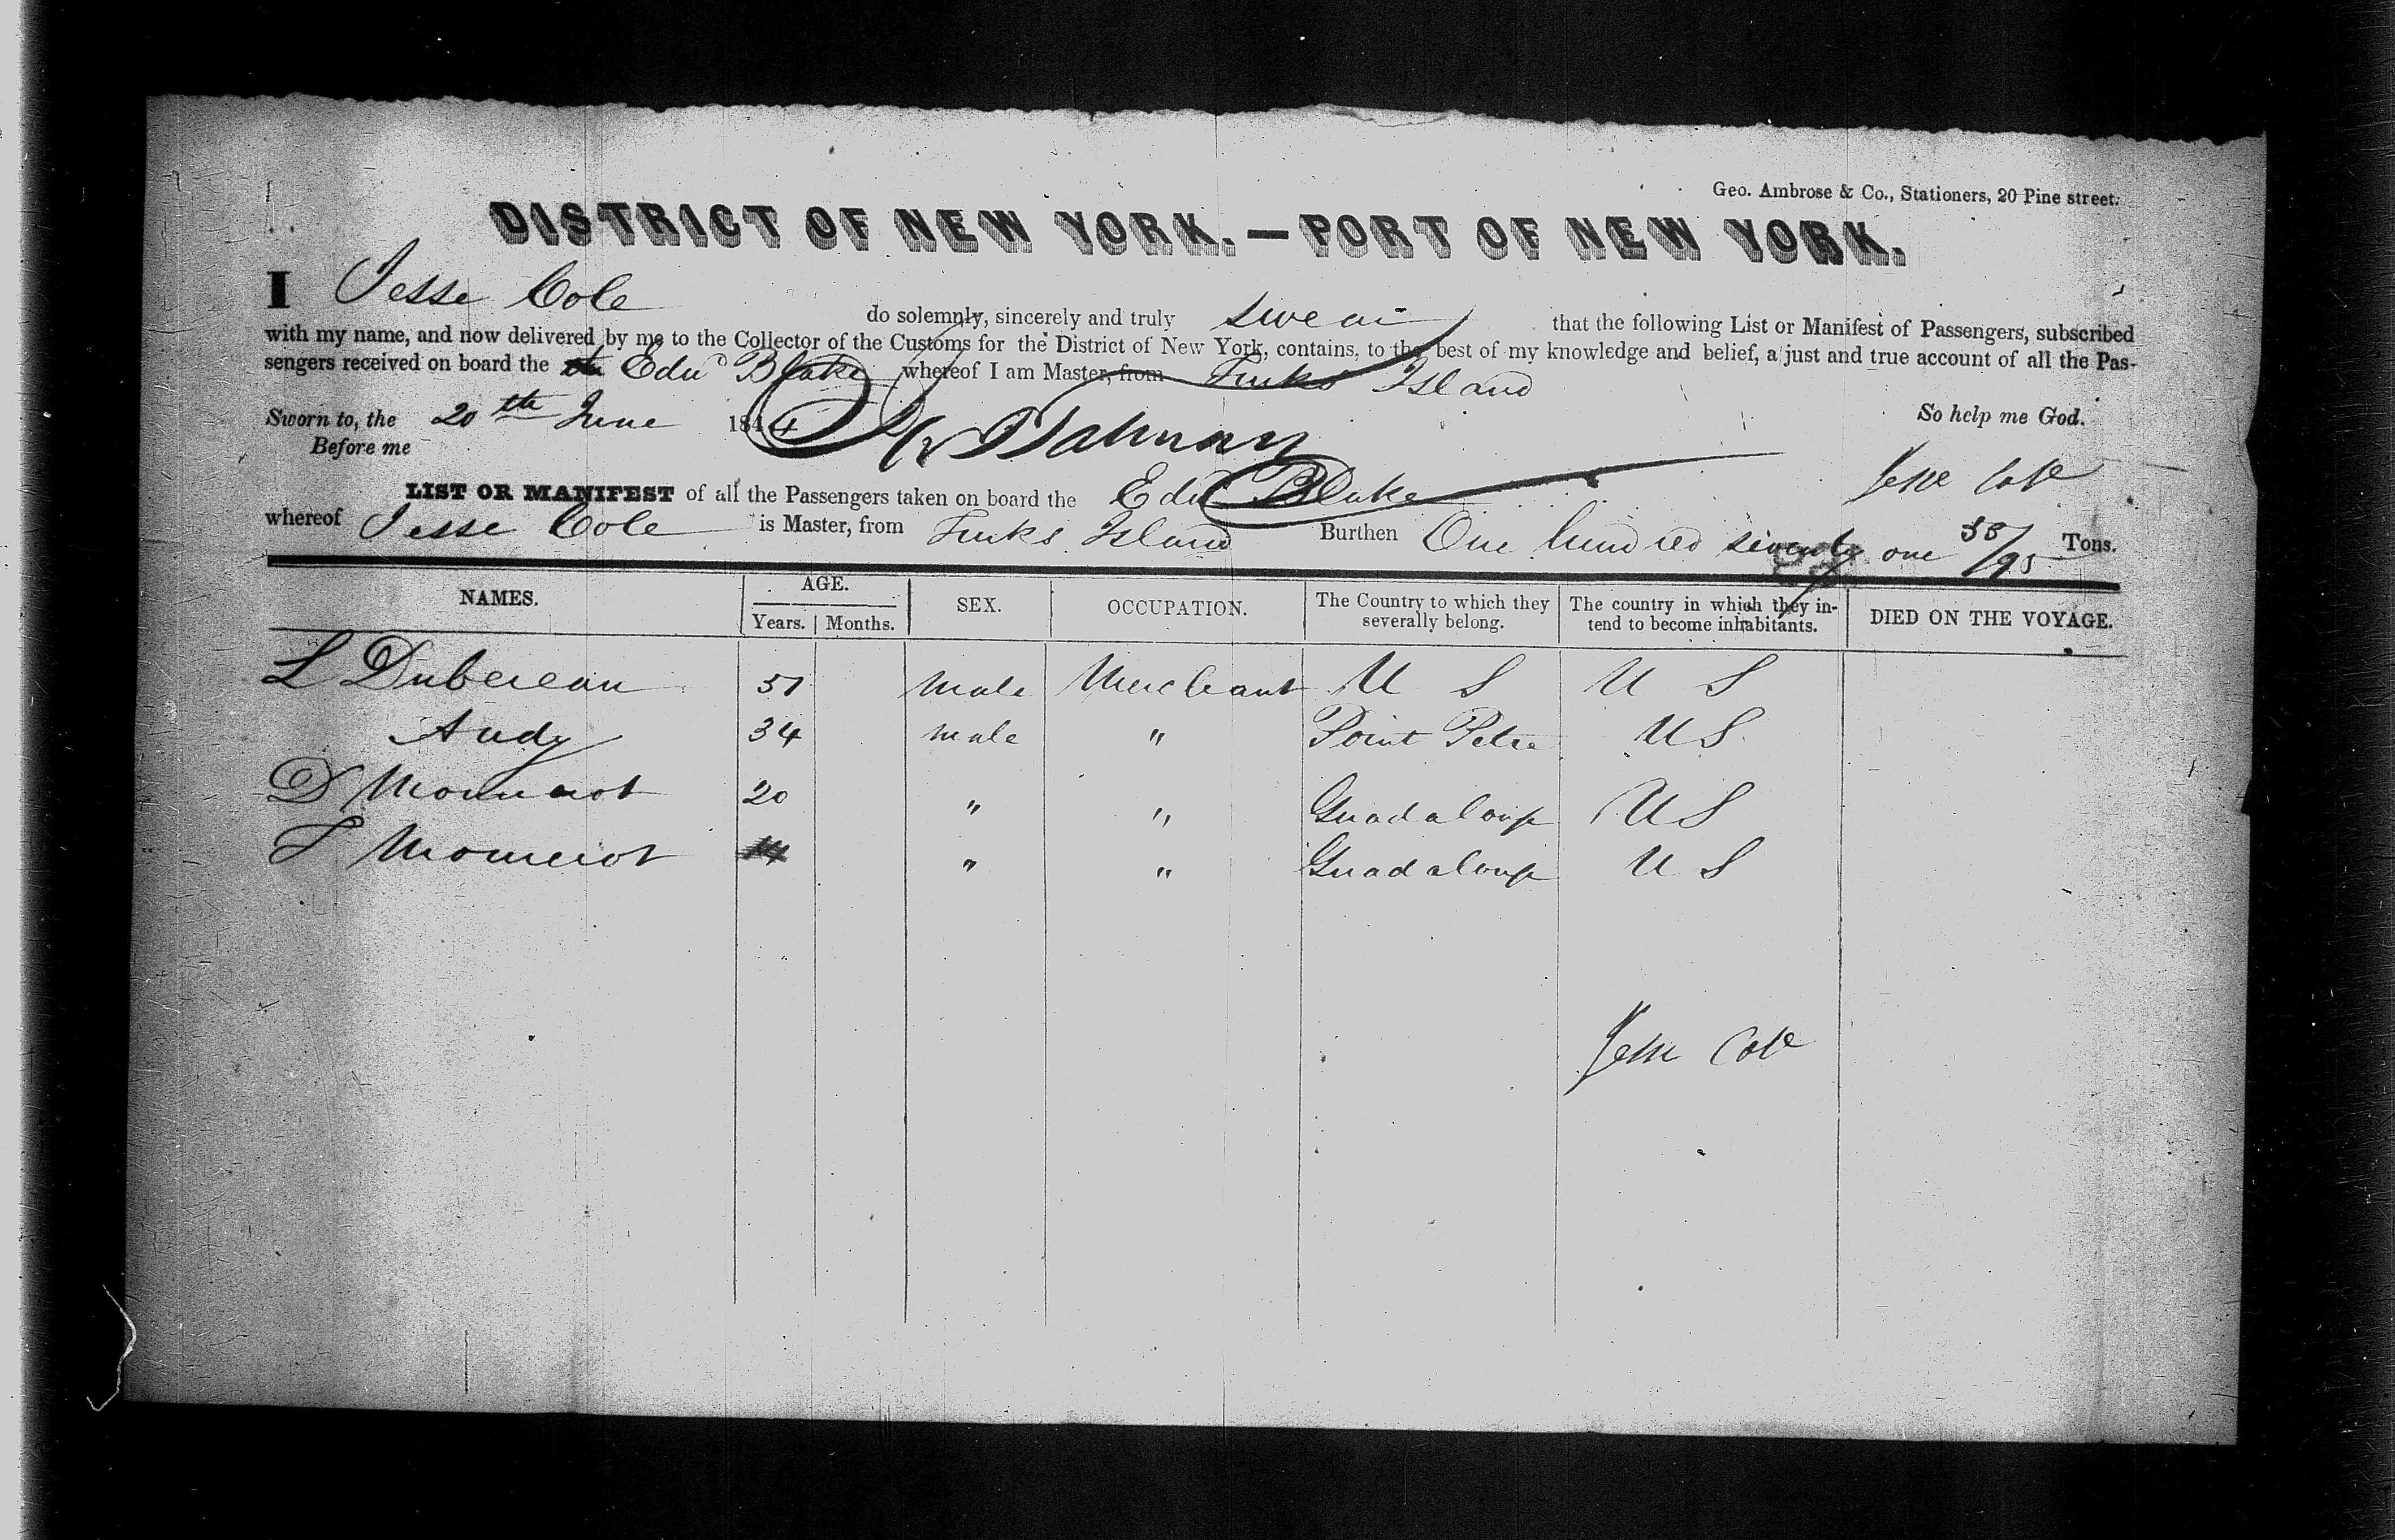 Geo. Ambrose & Co., Stationers, 20 Pine street.
DISTRICT OF NEW YORK.—PORT OF NEW YORK.
I Jesse Cole do solemnly, sincerely and truly swear that the following List or Manifest of Passengers, subscribed
with my name, and now delivered by me to the Collector of the Customs for the District of New York, contains, to the best of my knowledge and belief, a just and true account of all the Pas-
sengers received on board the Edwd Blake whereof I am Master, from Turks Island
Sworn to, the 20th June 1844 So help me God.
Before me
Jesse Cole
LIST OR MANIFEST of all the Passengers taken on board the Edwd Blake
whereof Jesse Cole is Master, from Turks Island Burthen One hundred seventy one 38/95 Tons.
NAMES. AGE. SEX. OCCUPATION. The Country to which they severally belong. The country in which they in-tend to become inhabitants. DIED ON THE VOYAGE.
Years. Months.
L Dubereau 51 male Merchant U S U S
Audy 34 male " Point Petre U S
D Monnerot 20 " " Guadaloup U S
F Monnerot " " Guadaloup U S
Jesse Cole